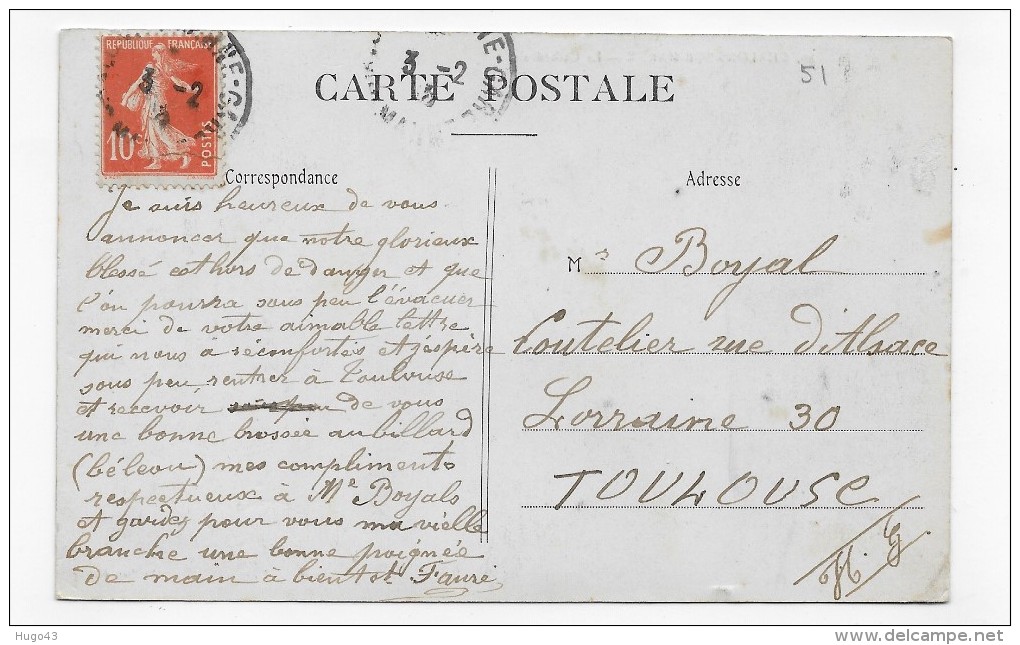 REPUBLIQUE FRANÇAISE
10c
POSTES
3 -2
3 -2
CARTE POSTALE
51
Correspondance
Adresse
Je suis heureux de vous
annoncer que notre glorieux
blessé est hors de danger et que
l'on pourra sous peu l'évacuer
merci de votre aimable lettre
qui nous a réconfortés et j'espère
sous peu rentrer à Toulouse
et recevoir de vous
une bonne brossée au billard
(béleou) mes compliments
respectueux à Me Boyals
et gardez pour vous ma vielle
branche une bonne poignée
de main à bientot Fauré
Mr Boyal
Coutelier rue d'Alsace
Lorraine 30
TOULOUSE
Hugo43
www.delcampe.net